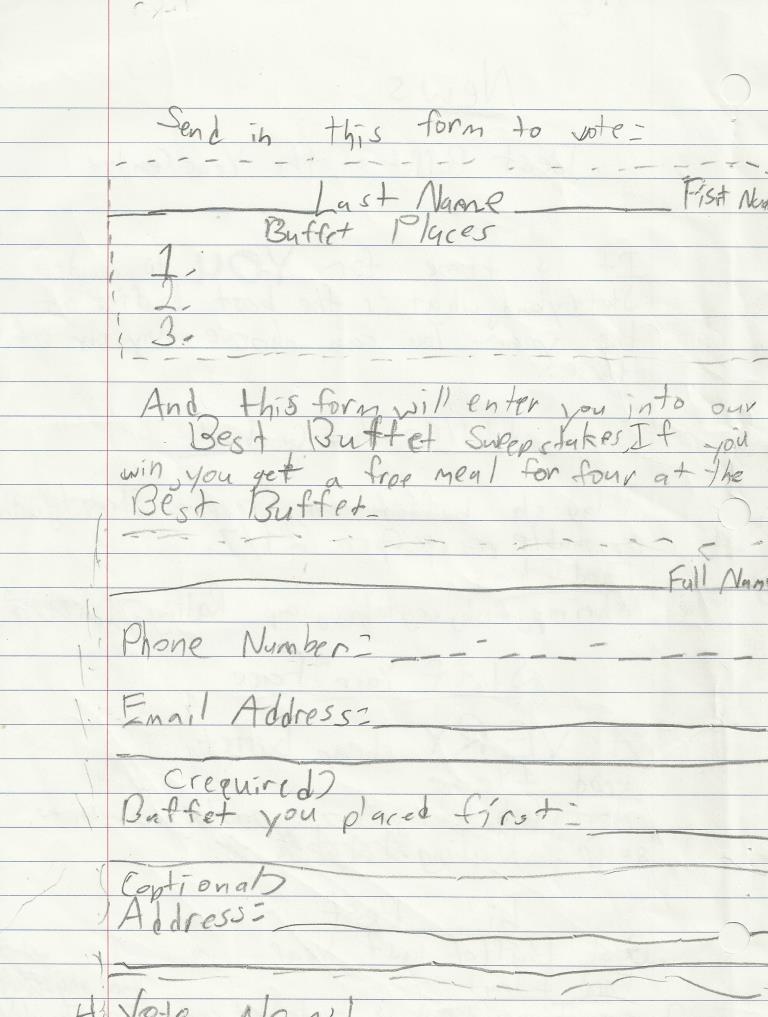 Send in this form to vote:
Last Name Fisrt Nam
Buffet Places
1.
2.
3.
And this form will enter you into our
Best Buffet Sweepstakes. If you
win, you get a free meal for four at the
Best Buffet.
Full Nam
Phone Number: - -
Email Address:
(required)
Buffet you placed first:
(optional)
Address:
Vote Now!